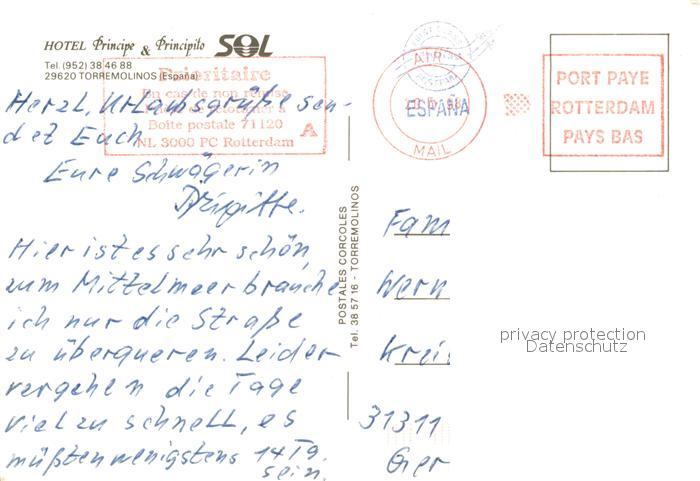 HOTEL Principe & Principito SOL
Tel. (952) 38 46 88
29620 TORREMOLINOS (España)
Prioritaire
En cas de non remise
Boîte postale 71120
NL 3000 PC Rotterdam
A
AIR
ESPAÑA
MAIL
PORT PAYE
ROTTERDAM
PAYS BAS
Herzl. Urlaubsgrüße sen-
det Euch
Eure Schwägerin
Brigitte.
Hier ist es sehr schön,
zum Mittelmeer brauche
ich nur die Straße
zu überqueren. Leider
vergehen die Tage
viel zu schnell, es
müßten wenigstens 14 Tg.
sein.
POSTALES CORCOLES
Tel. 38 57 16 - TORREMOLINOS
Fam
Wern
Kreis
31311
Ger
privacy protection
Datenschutz